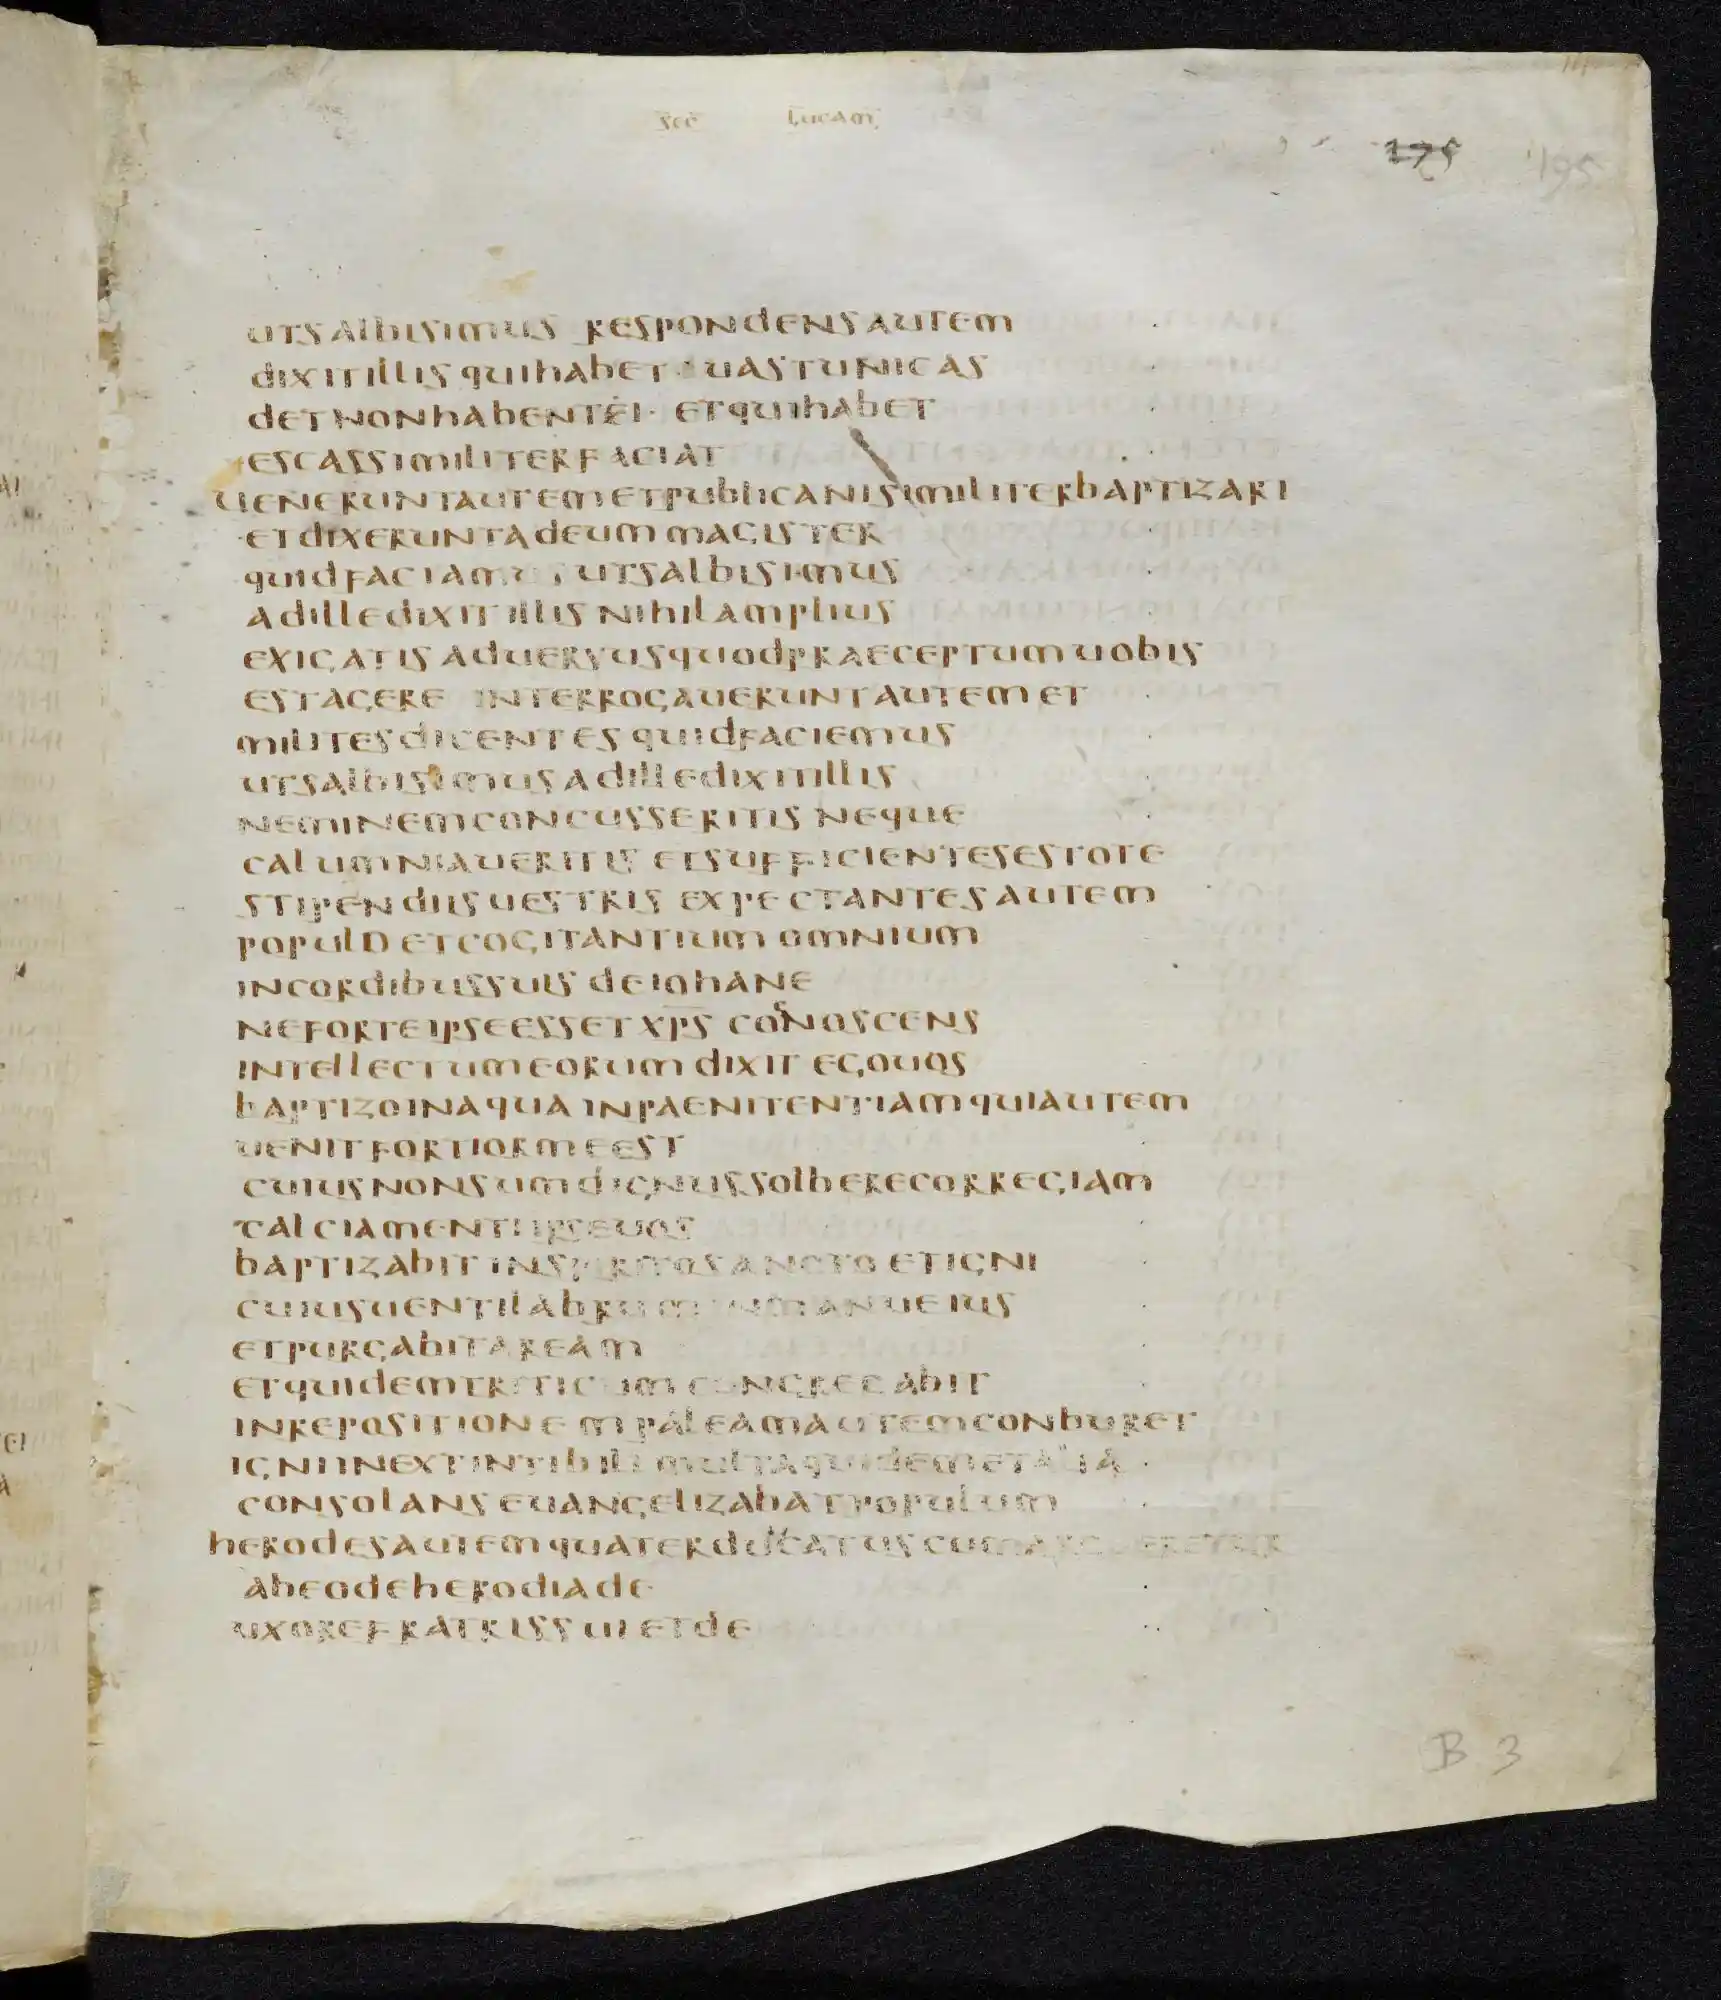 sec lucam
175 195
utsalbisimus respondensautem
dixitillis quihabet duastunicas
detnonhabentei · etquihabet
escassimiliterfaciat
ueneruntautemetpublicanisimiliterbaptizari
etdixeruntadeum magister
quidfaciamus utsalbisimus
adilledixit illis nihilamplius
exigatis aduersusquodpraeceptumuobis
estagere interrogaueruntautem et
militesdicentes quidfaciemus
utsalbisimus adilledixitillis
neminemconcusseritis neque
calumniaueritis etsufficientesestote
stipendiisuestris expectantesautem
populo etcogitantium omnium
incordibussuis deiohane
neforteipseesset xps cognoscens
intellectumeorum dixit egouos
baptizoinaqua inpaenitentiam quiautem
uenitfortiormeest
cuiusnonsumdignussolberecorregiam
calciamentiipseuos
baptizabit inspiritosancto etigni
cuiusuentilabrum inmanueius
etpurgabitaream
etquidemtriticum congregabit
inrepositionem paleamautemconburet
igniinextintibili multaquidemetalia
consolans euangelizabatpopulum
herodesautemquaterducatuscumargueretur
abeodeherodiade
uxorefratrissui etde
B 3